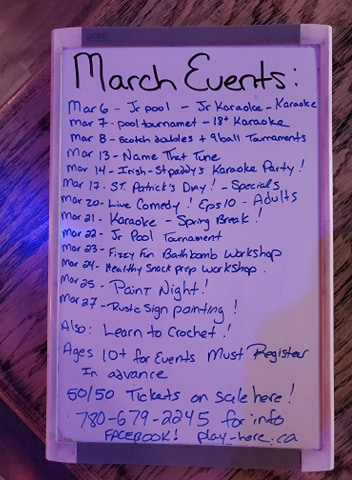 March Events:
Mar 6 - Jr pool - Jr Karaoke - Karaoke
Mar 7 - pool tournamet - 18+ Karaoke
Mar 8 - Scotch doubles + 9ball Tournaments
Mar 13 - Name That Tune
Mar 14 - Irish - St paddy's Karaoke Party!
Mar 17 - ST. Patrick's Day! - Specials
Mar 20 - Live Comedy! Eps 10 - Adults
Mar 21 - Karaoke - Spring Break!
Mar 22 - Jr Pool Tournament
Mar 23 - Fizzy Fun Bathbomb Workshop
Mar 24 - Healthy Snack prep Workshop.
Mar 25 - Paint Night!
Mar 27 - Rustic Sign painting!
Also: Learn to Crochet!
Ages 10+ for Events Must Register
In advance
50/50 Tickets on sale here!
780-679-2245 for info
FACEBOOK! play-here.ca